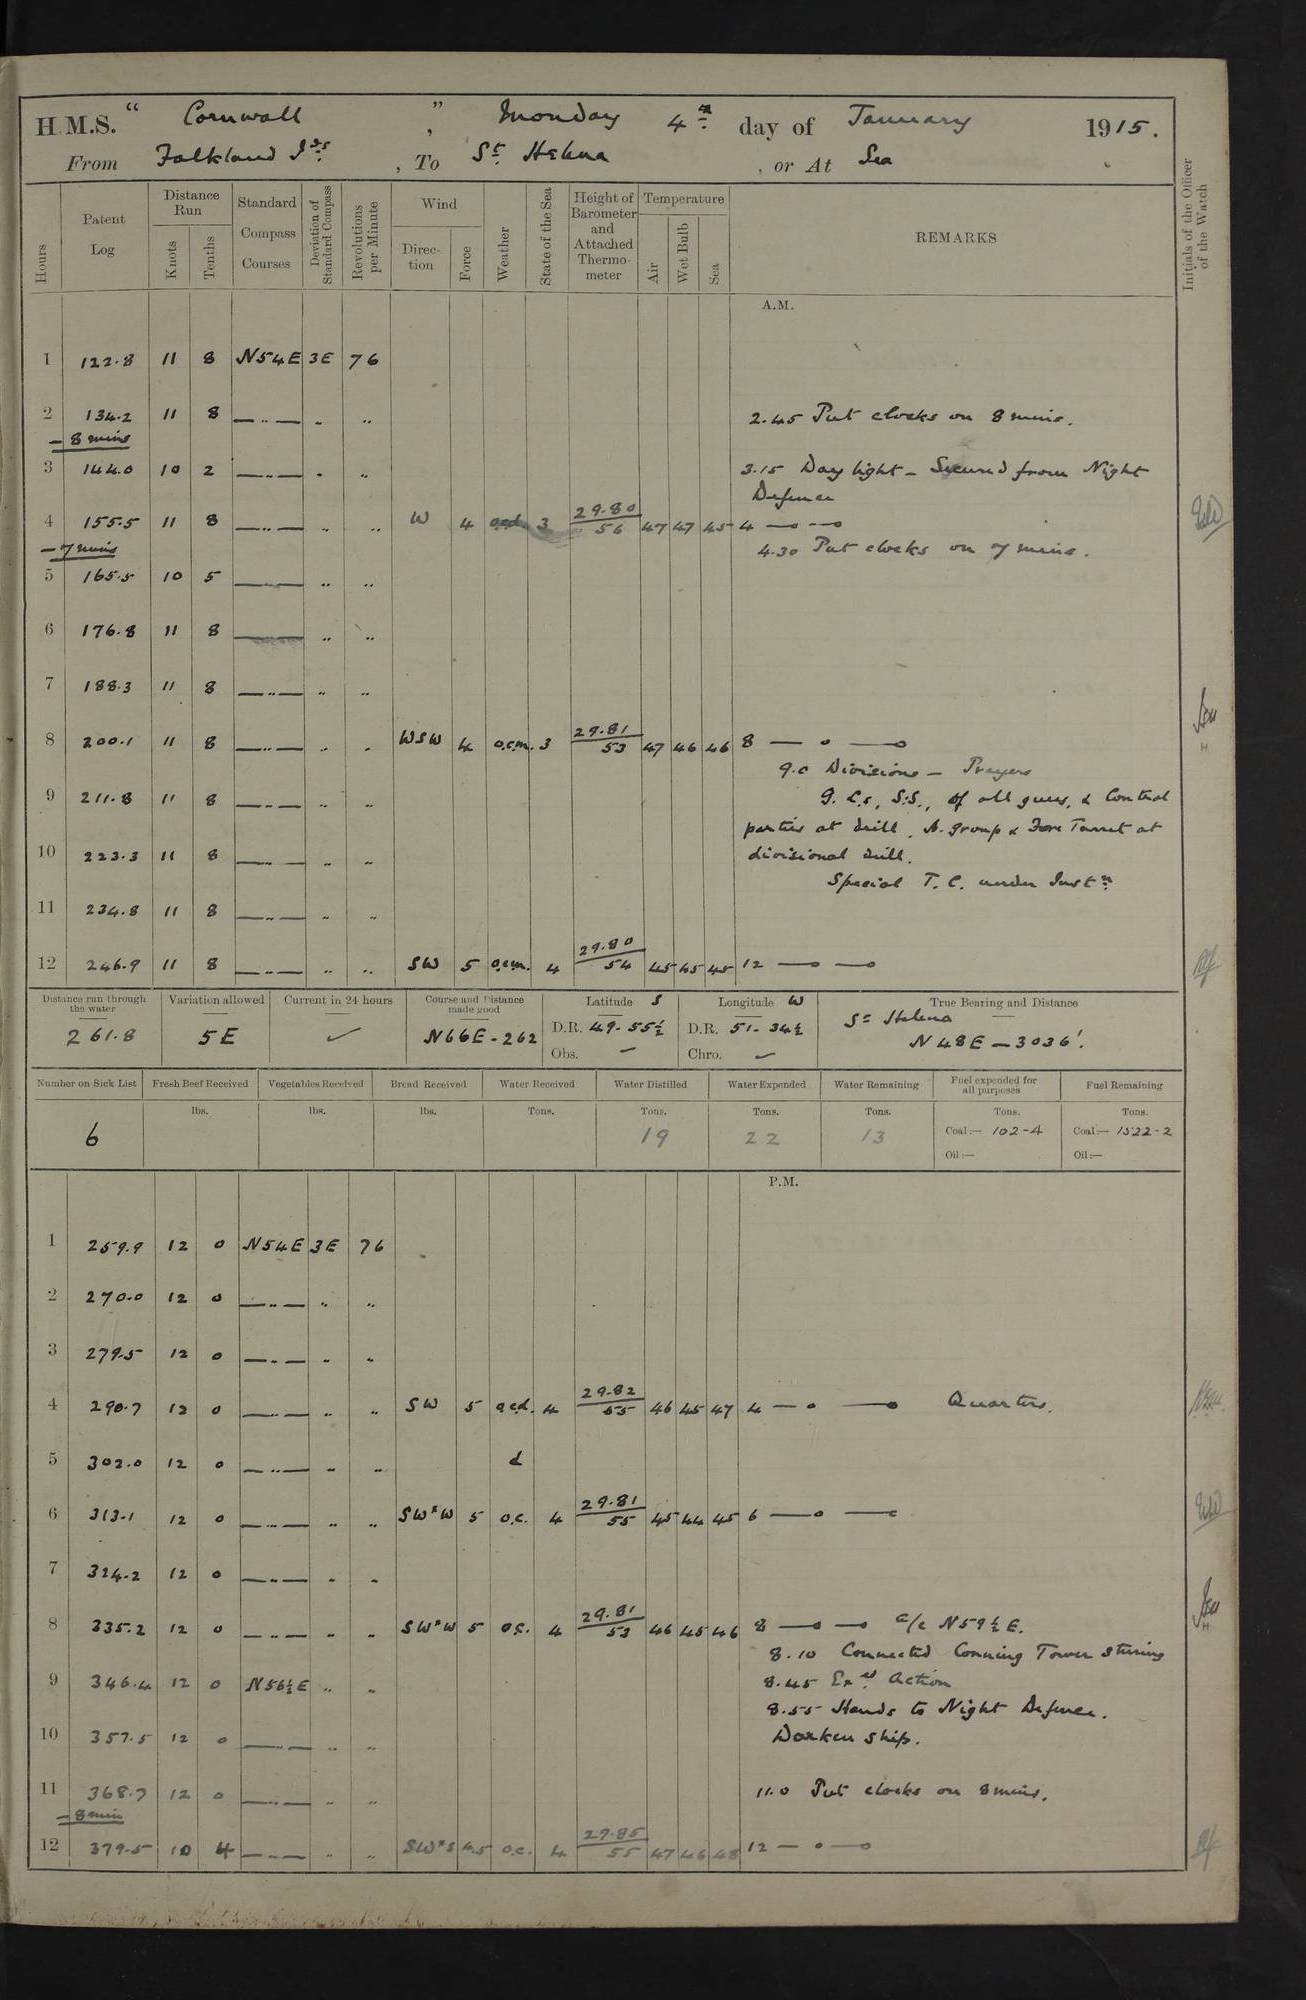 H.M.S. " Cornwall " , Monday 4th day of January 1915.
From Falkland Ids. , To St. Helena , or At Sea
Hours Patent Log Distance Run Knots Tenths Standard Compass Courses Deviation of Standard Compass Revolutions per Minute Wind Direction Force Weather State of the Sea Height of Barometer and Attached Thermometer Temperature Air Wet Bulb Sea REMARKS Initials of the Officer of the Watch
A.M.
1 122.8 11 8 N54E 3E 76
2 134.2 11 8 —„— „ „ 2.45 Put clocks on 8 mins.
- 8 mins
3 144.0 10 2 —„— „ „ 3.15 Daylight - Secured from Night
Defence
4 155.5 11 8 —„— „ „ W 4 ocd 3 29.80/56 47 47 45 4 —o —o
- 7 mins 4.30 Put clocks on 7 mins.
5 165.5 10 5 —„— „ „
6 176.8 11 8 —„— „ „
7 188.3 11 8 —„— „ „
8 200.1 11 8 —„— „ „ WSW 4 o.c.m. 3 29.81/53 47 46 46 8 — o —o
9.0 Divisions - Prayers
9 211.8 11 8 —„— „ „ G.L.s, S.S., of all guns, & Control
parties at drill. A. group & Fore Turret at
10 223.3 11 8 —„— „ „ divisional drill.
Special T.C. under Instn
11 234.8 11 8 —„— „ „
12 246.9 11 8 —„— „ „ SW 5 o.c.m. 4 29.80/54 45 45 45 12 —o —o
Distance run through the water Variation allowed Current in 24 hours Course and Distance made good Latitude S Longitude W True Bearing and Distance
261.8 5E ✓ N66E - 262 D.R. 49-55½ D.R. 51-34½ St Helena
Obs. — Chro. ✓ N48E - 3036'.
Number on Sick List Fresh Beef Received Vegetables Received Bread Received Water Received Water Distilled Water Expended Water Remaining Fuel expended for all purposes Fuel Remaining
lbs. lbs. lbs. Tons. Tons. Tons. Tons. Tons. Tons.
6 19 22 13 Coal:— 102-4 Coal:— 1522-2
Oil:— Oil:—
P.M.
1 259.9 12 0 N54E 3E 76
2 270.0 12 0 —„— „ „
3 279.5 12 0 —„— „ „
4 290.7 12 0 —„— „ „ SW 5 ocd. 4 29.82/55 46 45 47 4 — o —o Quarters.
5 302.0 12 0 —„— „ „ d
6 313.1 12 0 —„— „ „ SWxW 5 o.c. 4 29.81/55 45 44 45 6 —o —
7 324.2 12 0 —„— „ „
8 335.2 12 0 —„— „ „ SWxW 5 o.c. 4 29.81/53 46 45 46 8 —o —o a/c N59½E.
8.10 Connected Conning Tower Steering
9 346.4 12 0 N56½E „ „ 8.45 Exed Action
8.55 Hands to Night Defence.
10 357.5 12 0 —„— „ „ Darken ship.
11 368.7 12 0 —„— „ „ 11.0 Put clocks on 8 mins.
- 8 min
12 379.5 10 4 —„— „ „ SWxS 4.5 o.c. 4 29.85/55 47 46 48 12 — o —o